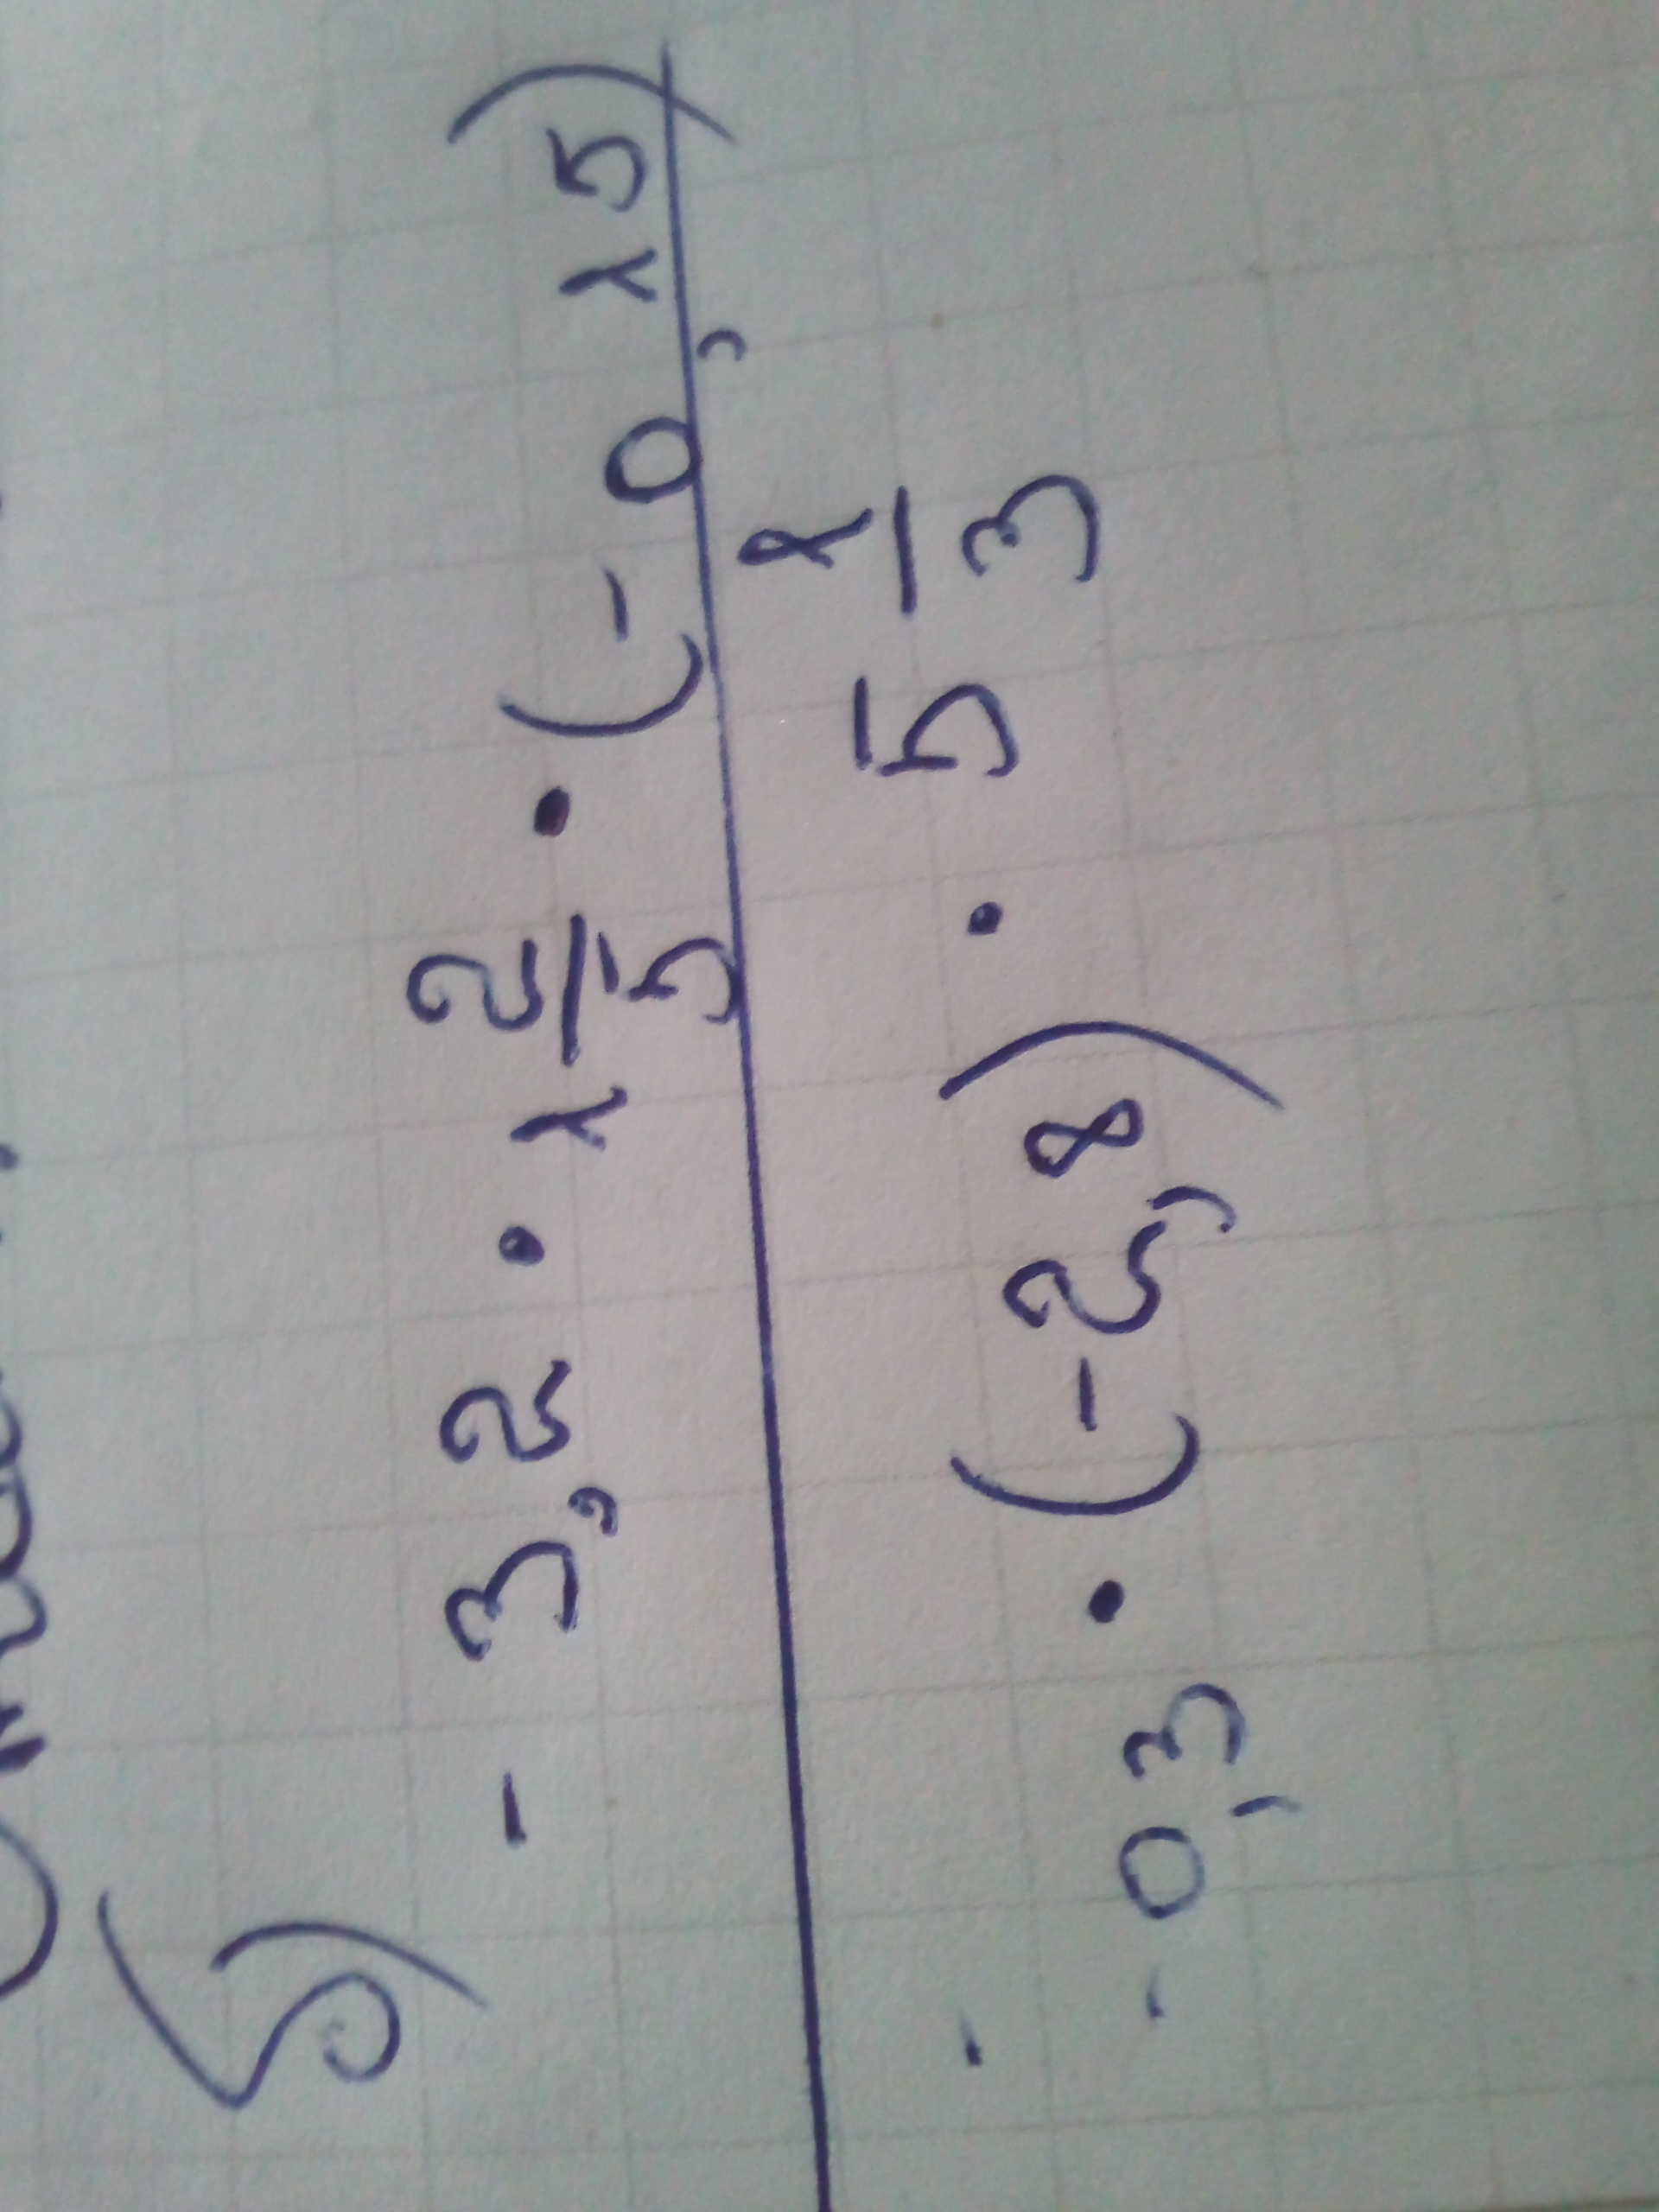 б) -3,2 · 1 2/5 · (-0,15)
-0,3 · (-2,8) · 5 1/3